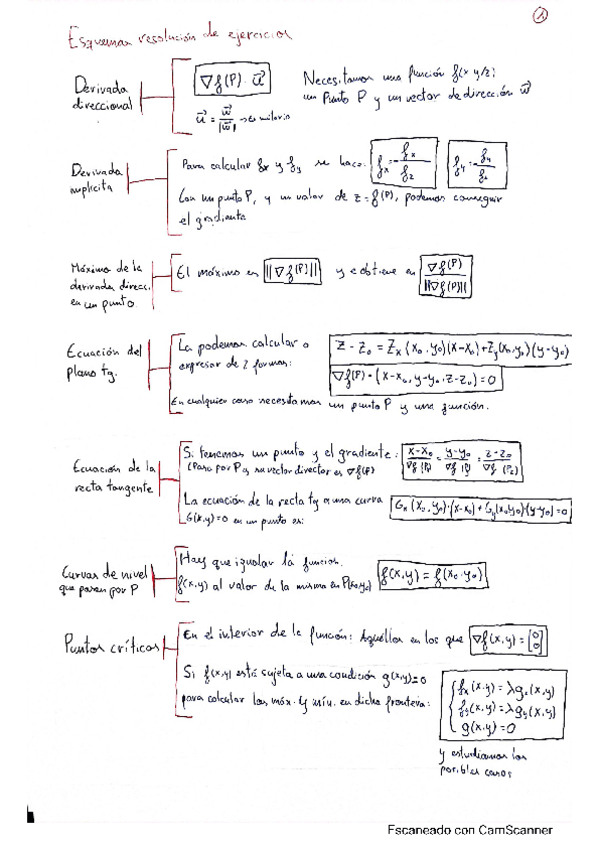 1
Esquemas resolución de ejercicios
Derivada direccional
∇f(P) · u⃗
u⃗ = w⃗/|w⃗| → es unitario
Necesitamos una función f(x y/z)
un Punto P y un vector de dirección w⃗
Derivada implícita
Para calcular fx y fy se hace: fx = - fx/fz fy = - fy/fz
Con un punto P, y un valor de z = f(P), podemos conseguir
el gradiente
Máximo de la
derivada direcc.
en un punto.
El máximo es ||∇f(P)|| y se obtiene en ∇f(P)/||∇f(P)||
Ecuación del
plano tg.
La podemos calcular o
expresar de 2 formas:
z - z₀ = Zx (x₀, y₀)(x-x₀) + Zy(x₀, y₀)(y-y₀)
∇f(P) · (x-x₀, y-y₀, z-z₀) = 0
En cualquier caso necesitamos un punto P y una función.
Ecuación de la
recta tangente
Si tenemos un punto y el gradiente: x-x₀/∇f(P) = y-y₀/∇f(P) = z-z₀/∇f(Pz)
(Pasa por P y su vector director es ∇f(P)
La ecuación de la recta tg a una curva Gx (x₀, y₀)·(x-x₀) + Gy(x₀,y₀)(y-y₀) = 0
G(x,y)=0 en un punto es:
Curvas de nivel
que pasen por P
Hay que igualar la función.
f(x,y) al valor de la misma en P(x₀,y₀) f(x,y) = f(x₀, y₀)
Puntos críticos
En el interior de la función: Aquellos en los que ∇f(x,y) = [0 0]
Si f(x,y) está sujeta a una condición g(x,y)=0
para calcular los máx. y mín. en dicha frontera:
fx (x,y) = λgx(x,y)
fy(x,y) = λgy(x,y)
g(x,y) = 0
y estudiamos los
posibles casos
Escaneado con CamScanner